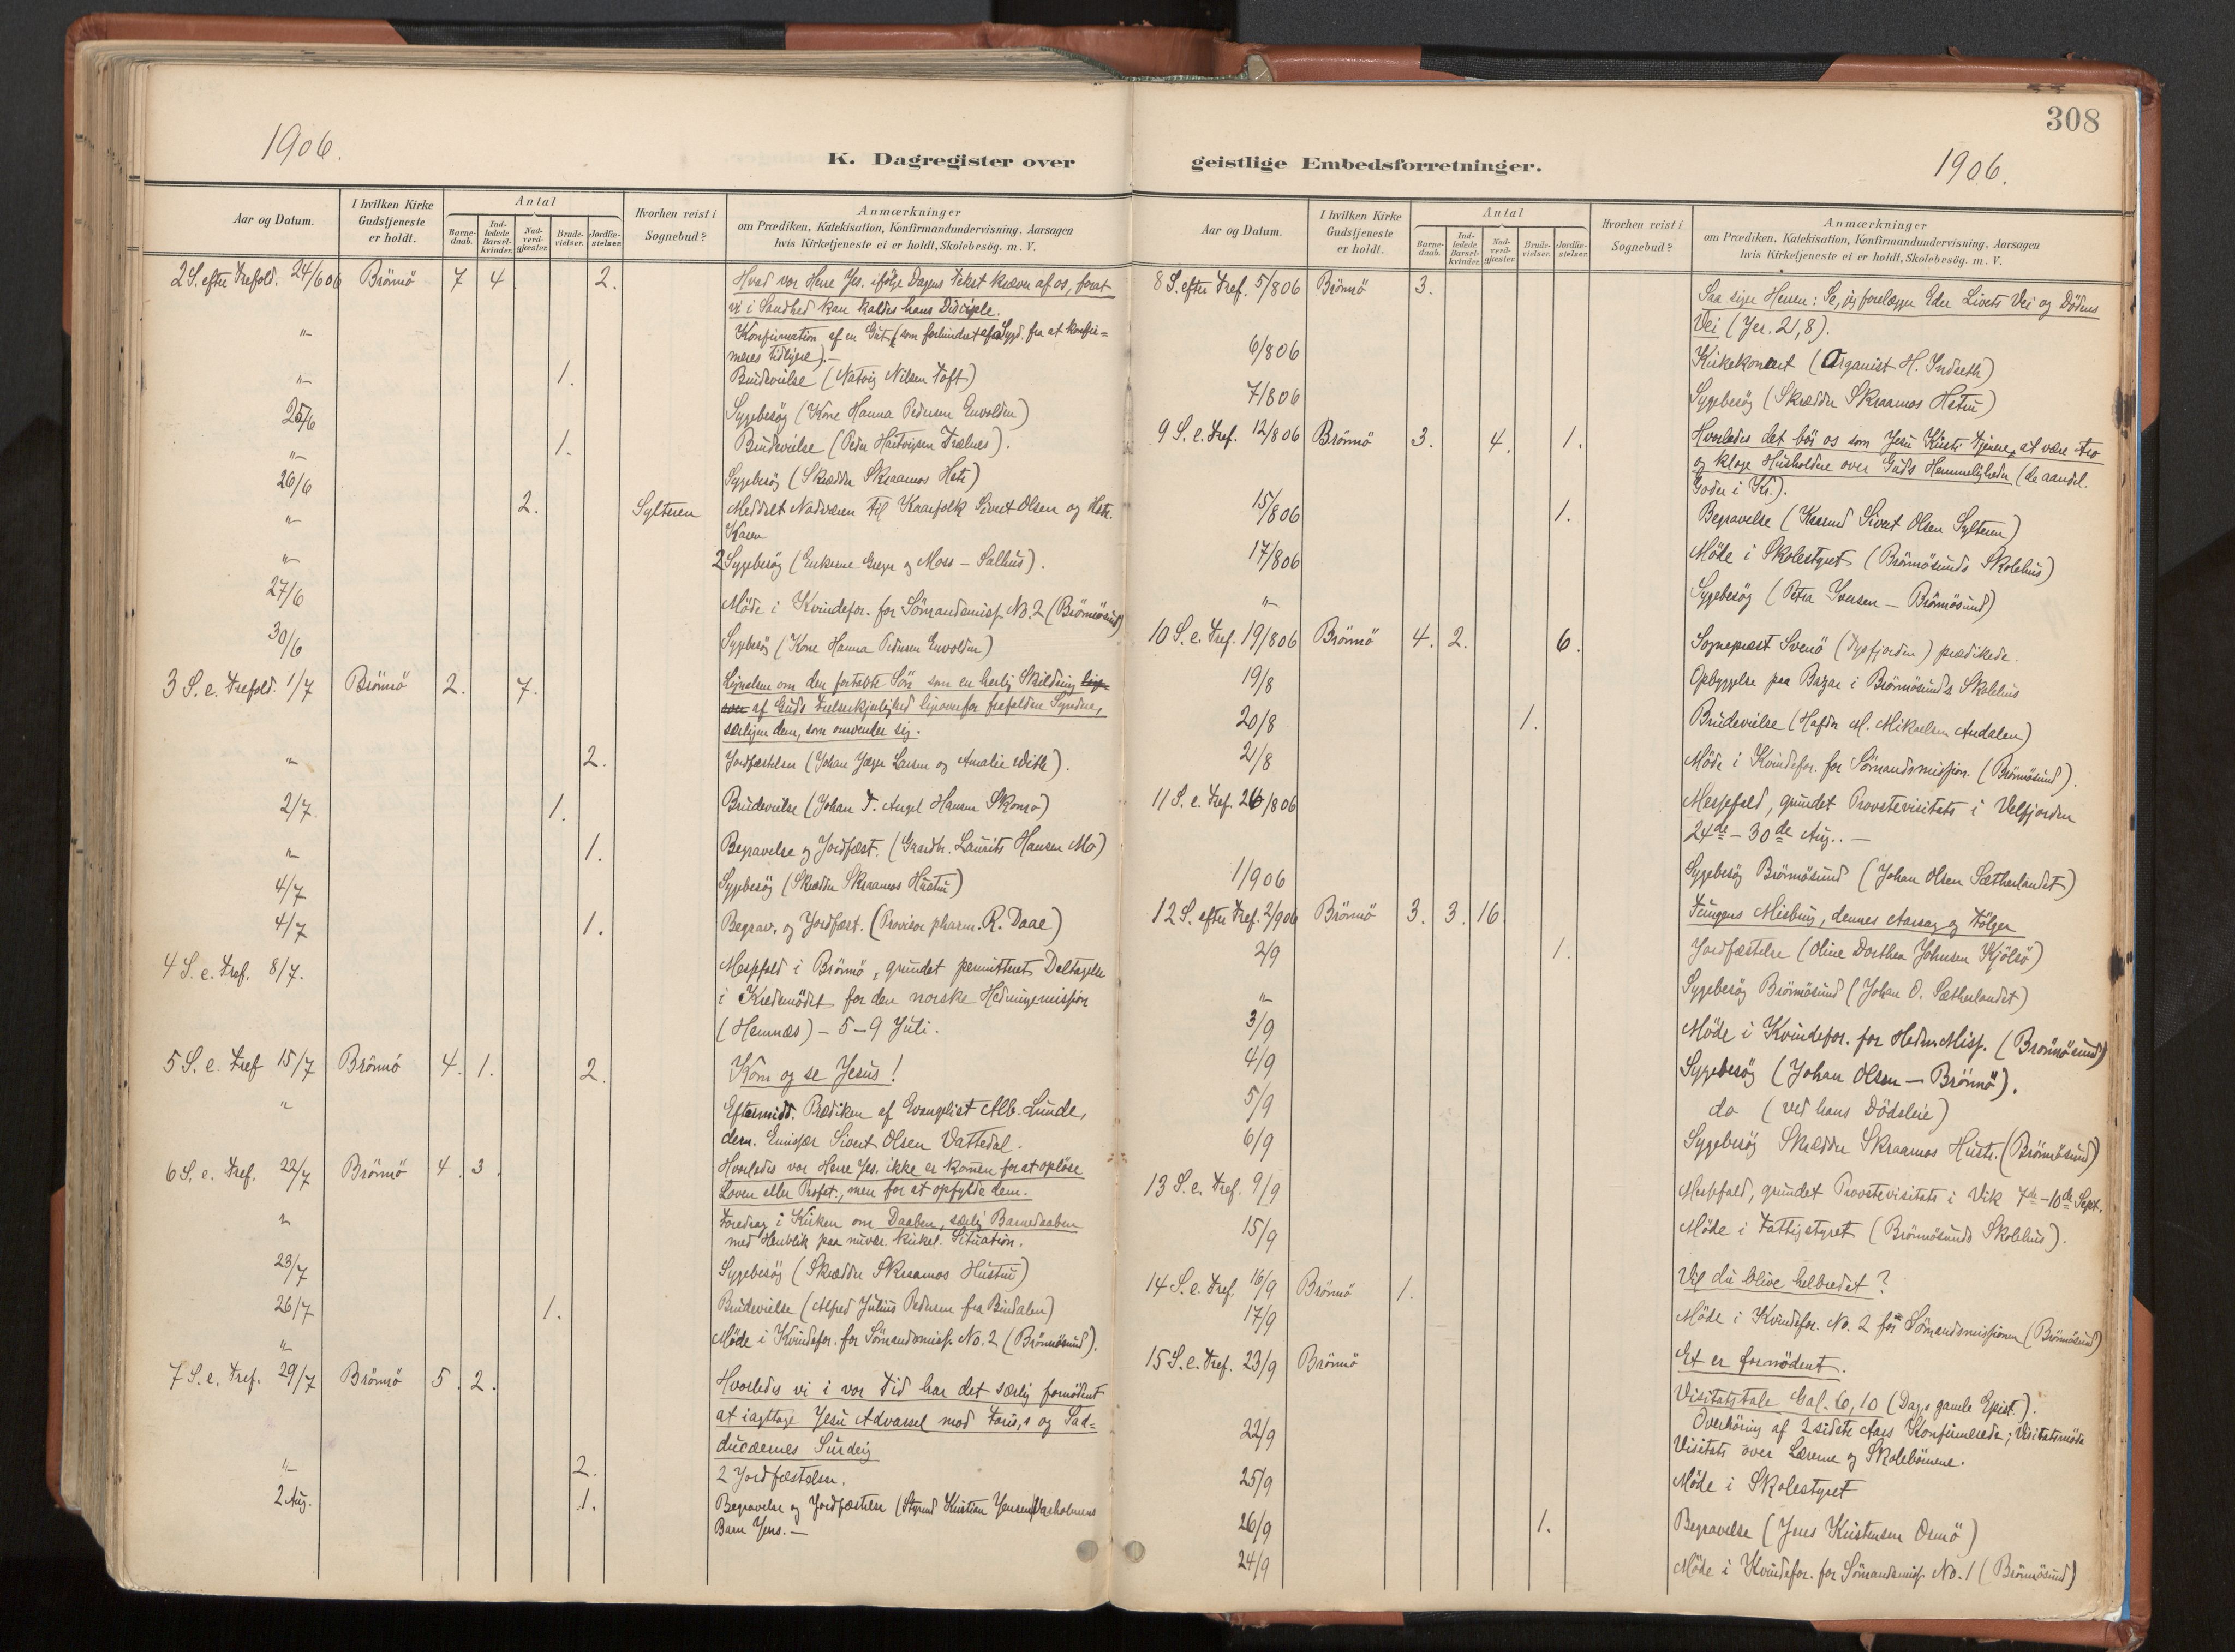 1906.
K. Dagregister over
Aar og Datum.
I hvilken Kirke Gudstjeneste er holdt.
Antal
Barnedaab.
Indledede Barselkvinder.
Nadverdgjester.
Brudevielser.
Jordfæstelser.
Hvorhen reist i Sognebud?
Anmærkninger
om Prædiken, Katekisation, Konfirmandundervisning, Aarsagen
hvis Kirketjeneste ei er holdt, Skolebesög. m. V.
2 S. efter Trefold. 24/6 06 Brönnö 7 4 2. Hvad vor Herre Jes. ifölge Dagens Tekst kræver af os, forat
vi i Sandhed kan kaldes hans Disciple.
"– Konfirmation af en Gut (som forhindret af Sygd. fra at konfir=
meres tidligere).–
"– 1. Brudevielse (Natvig Nilsen Toft)
25/6 Sygebesög (Kone Hanna Pedersen Envolden)
"– 1. Brudevielse (Peder Hartvigsen Trælnes).
26/6 Sygebesög (Skrædder Skraamos Hstr)
"– 2. Sylteren Meddelt Nadveren til Kaarfolk Sivert Olsen og Hstr.
Karen
"– 2 Sygebesög (Enkerne Greger og Moss – Salhus).
27/6 Möde i Kvindefor. for Sömandsmiss. No. 2 (Brönnösund)
30/6 Sygebesög (Kone Hanna Pedersen Envolden)
3 S. e. Trefold. 1/7 Brönnö 2. 7. Lignelsen om den fortabte Sön som en herlig Skildring
af Guds Frelserkjærlighed ligeoverfor frafaldne Syndere,
særligen dem, som omvender sig.
"– 2. Jordfæstelser (Johan Jæger Larsen og Amalie With).
2/7. 1. Brudevielse (Johan T. Angel Hansen Skomo)
"– 1. Begravelse og Jordfæst. (Gaardbr. Laurits Hansen Mo)
4/7 Sygebesög (Skrædder Skraamos Hustru)
4/7 1. Begrav. og Jordfæst. (Provisor pharm. R. Daae)
4 S. e. Tref. 8/7. Messefald i Brönnö, grundet permitteret Deltagelse
i Kredsmödet for den norske Hedningemission
(Hemnæs) – 5–9 Juli.
5 S. e. Tref 15/7 Brönnö 4. 1. 2. Kom og se Jesus!
"– Eftermidd. Prædiken af Evangelist Alb. Lunde,
dern. Emissær Sivert Olsen Vattedal.
6 S. e. Tref. 22/7 Brönnö 4. 3. Hvorledes vor Herre Jes. ikke er kommen for at oplöse
Loven eller Profet., men for at opfylde dem.
"– Foredrag i Kirken om Daaben, særlig Barnedaaben
med Henblik paa nuvær. kirkel. Situation.
23/7 Sygebesög (Skrædder Skraamos Hustru)
26/7 1. Brudevielse (Alfred Julius Pedersen fra Bindalen)
"– Möde i Kvindefor. for Sömandsmiss. No. 2 (Brönnösund).
7 S. e. Tref. 29/7 Brönnö 5. 2. Hvorledes vi i vor Tid har det særlig fornödent
at iagttage Jesu Advarsel mod Faris,s og Sad=
ducæernes Surdeig
"– 2. 2 Jordfæstelser.
2 Aug. 1. Begravelse og Jordfæstelse (Styrmd Kristian Jensen
Barn Jens.–
308
1906.
geistlige Embedsforretninger.
Aar og Datum.
I hvilken Kirke Gudstjeneste er holdt.
Antal
Barnedaab.
Indledede Barselkvinder.
Nadverdgjæster.
Brudevielser.
Jordfæstelser.
Hvorhen reist i Sognebud?
Anmærkninger
om Prædiken, Katekisation, Konfirmandundervisning, Aarsagen
hvis Kirketjeneste ei er holdt, Skolebesög. m. V.
8 S. efter Tref. 5/8 06 Brönnö 3. Saa siger Herren: Se, jeg forelægger Eder Livets Vei og Dödens
Vei (Jer. 21,8).
6/8 06 Kirkekoncert (Organist H. Indseth)
7/8 06 Sygebesög (Skrædder Skraamos Hstru)
9 S. e. Tref. 12/8 06 Brönnö 3. 4. 1. Hvorledes det bör os som Jesu Kristi Tjenere, at være tro
og kloge Husholdere over Guds Hemmeligheder (de aandel.
Goder i Kr.).
15/8 06 1. Begravelse (Kaarmd Sivert Olsen Sylteren)
17/8 06 Möde i Skolestyret (Brönnösunds Skolehus)
"– Sygebesög (Petra Iversen – Brönnösund)
10 S. e. Tref. 19/8 06 Brönnö 4. 2. 6. Sogneprest Svenö (Tysfjorden) prædikede.
19/8 Opbyggelse paa Bazar i Brönnösunds Skolehus
20/8 1. Brudevielse (Hafdn M. Mikaelsen Andalen)
21/8 Möde i Kvindefor. for Sömandsmission. (Brönnösund).
11 S. e. Tref. 26/8 06 Messefald, grundet Provstevisitats i Velfjorden
24de – 30de Aug.. –
1/9 06 Sygebesög Brönnösund (Johan Olsen Sætherlandet)
12 S. efter Tref. 2/9 06 Brönnö 3. 3. 16. Tungens Misbrug, dennes Aarsag og Fölger
2/9 1. Jordfæstelse (Oline Dorthea Johnsen Kjölsö)
"– Sygebesög Brönnösund (Johan O. Sætherlandet)
3/9 Möde i Kvindefor. for Hedn. Miss. (Brönnösund)
4/9 Sygebesög (Johan Olsen – Brönnö).
5/9 do (ved hans Dödsleie)
6/9 Sygebesög Skrædder Skraamos Hustr. (Brönnösund)
13 S. e. Tref. 9/9 Messefald, grundet Provstevisitats i Vik 7de – 10de Sept.
15/9 Möde i Fattigstyret (Brönnösunds Skolehus).
14 S. e. Tref. 16/9 Brönnö 1. Vil du blive helbredet?
17/9 Möde i Kvindefor. No. 2 for Sömandsmissionen (Brönnösund)
15 S. e. Tref. 23/9 Brönnö Et er fornödent.
Visitatstale Gal. 6,10 (Dag,s gamle Epist.).
22/9 Overhöring af 2 sidste Aars Konfirmerede; Visitatsmöde
Visitats over Lærerne og Skolebörnene.
25/9 Möde i Skolestyret
26/9 1. Begravelse (Jens Kristensen Ormö)
24/9 Möde i Kvindefor. for Sömandsmiss. No. 1 (Brönnösund)